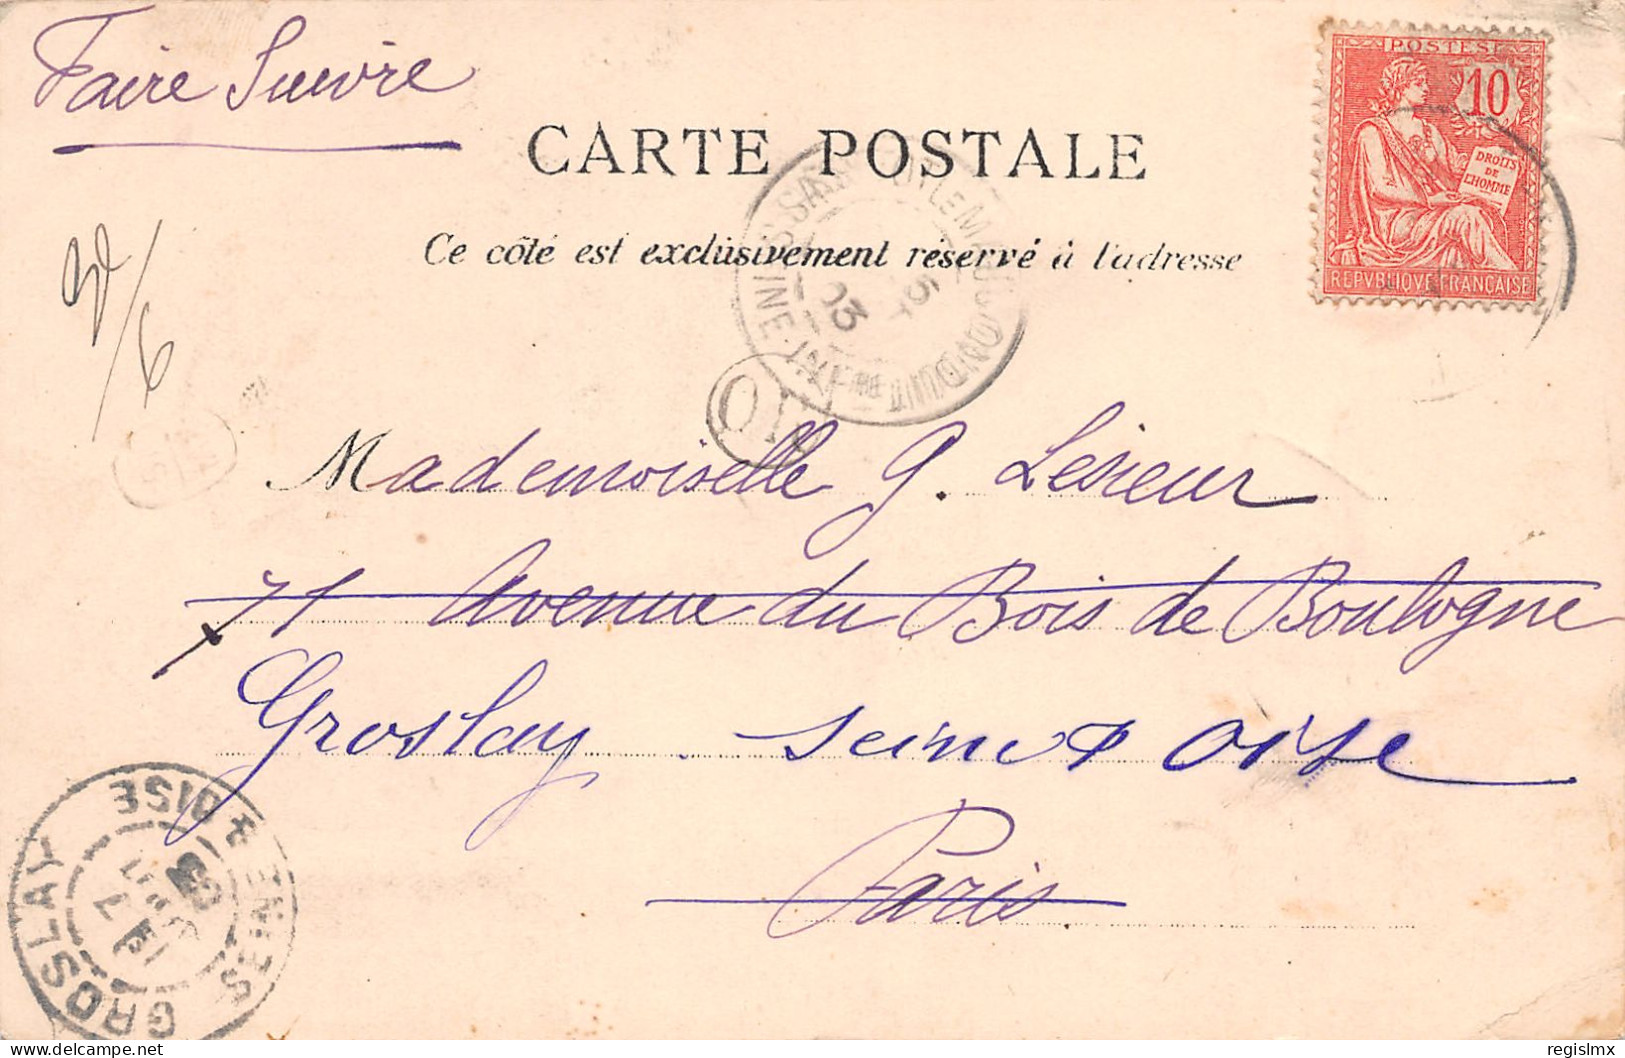 Faire Suivre
CARTE POSTALE
Ce côté est exclusivement réservé à l'adresse
POSTES
10
DROITS
DE
L'HOMME
REPVBLIQVE FRANÇAISE
OR
Mademoiselle G. Lesieur
71 Avenue du Bois de Boulogne
Groslay Seine & Oise
Paris
GROSLAY
SEINE & OISE
03
regislmx